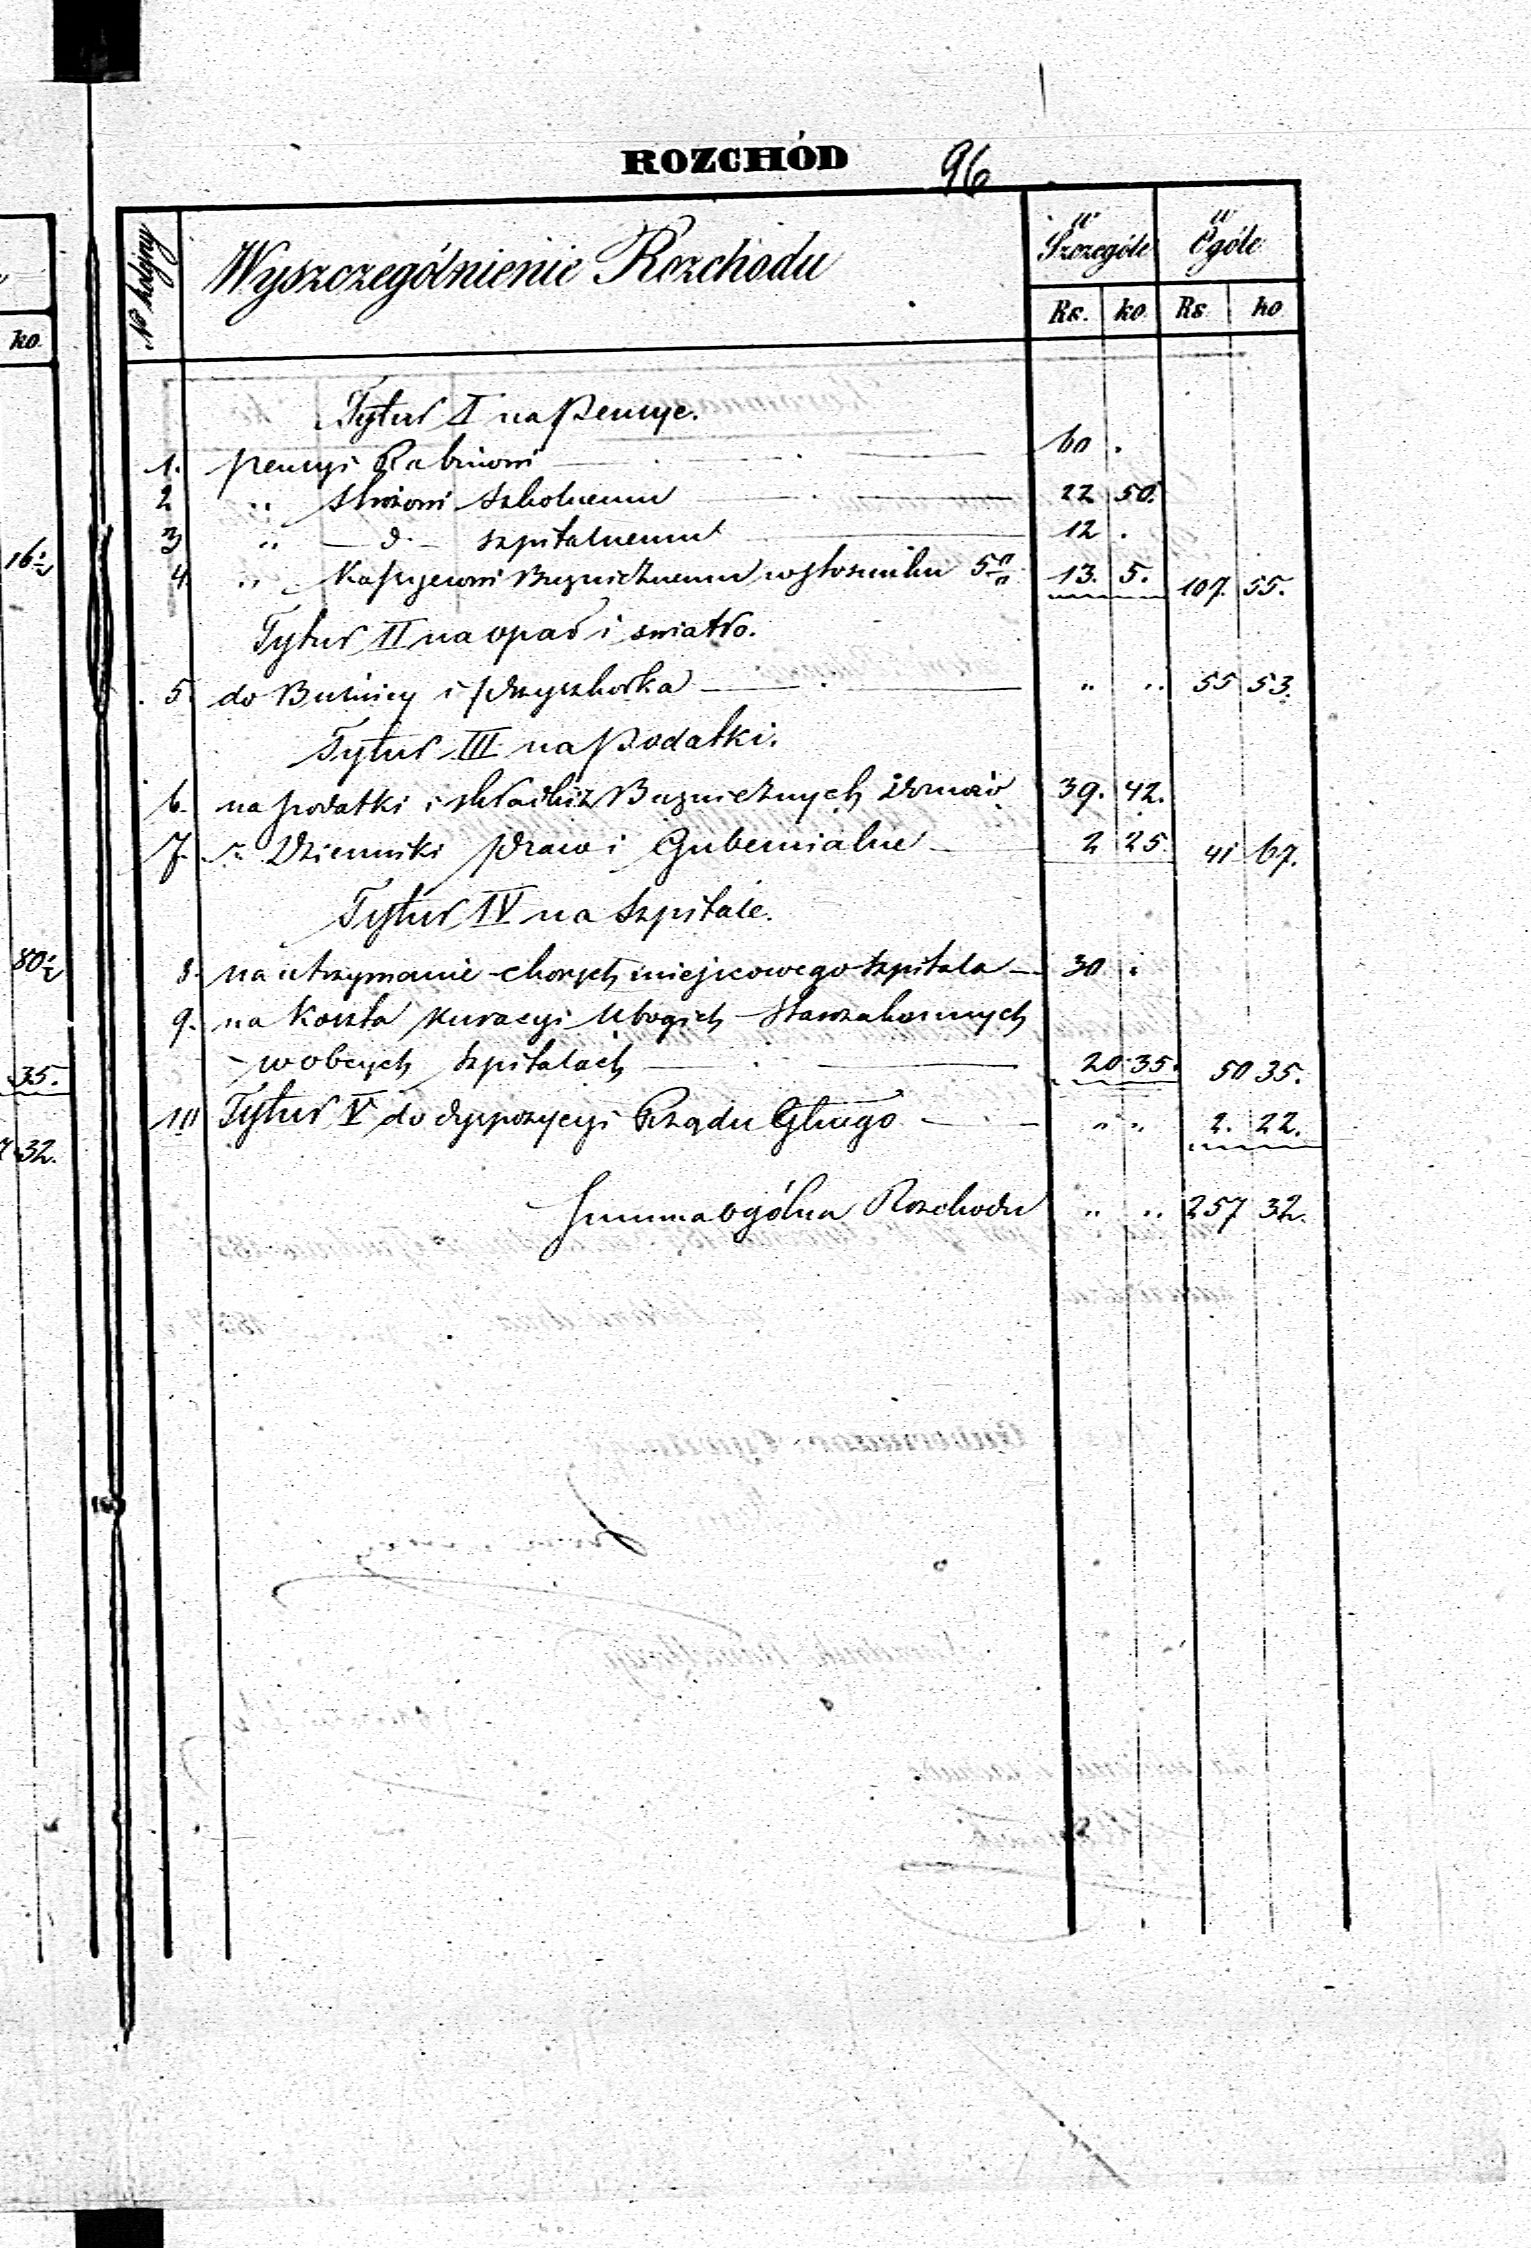 ROZCHÓD 96
№ kolejny Wyszczególnienie Rozchodu w Szczególe w Ogóle
ko. Rs. ko Rs ko
Tytuł I na Pensye.
1. pensyi Rabinowi 60 .
2 " Stróżowi Szkolnemu 22 50.
3 " — d. — szpitalnemu 12 .
16 4 " Kassyerowi Bużnicznemu w stosunku 5 13. 5. 107. 55.
Tytuł II na opał i swiatło.
5. do Bużnicy i Przyszkołka " " 55 53.
Tytuł III na Podatki.
6. na podatki i składki z Bużnicznych domów 39. 42.
7. Dzienniki Praw i Gubernialne 2 25. 41 67.
Tytuł IV na Szpitale.
80 8. na utrzymanie chorych miejscowego szpitala 30 .
9. na koszta kuracyi Ubogich Starozakonnych
35. w obcych szpitalach 20 35. 50 35.
10 Tytuł V do dyspozycyi Rządu Glnego " " 2. 22.
32.
Summa ogólna Rozchodu " " 257 32.